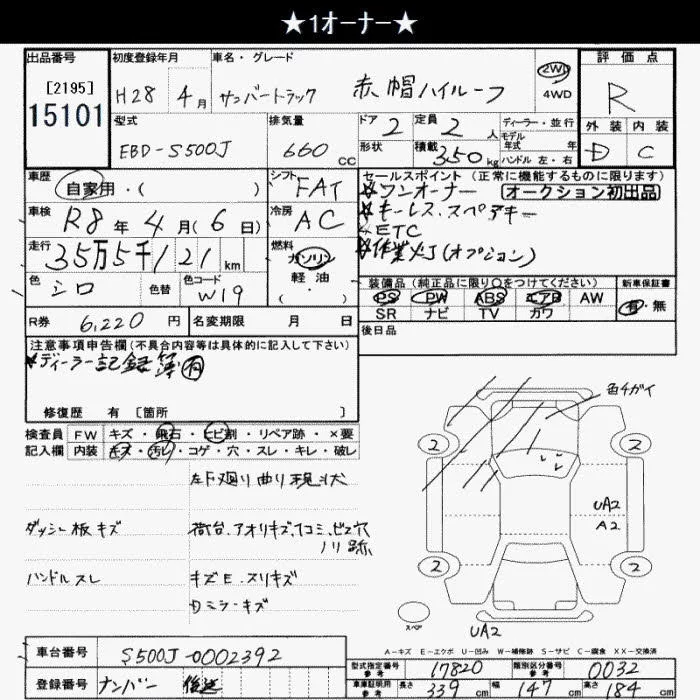 ★1オーナー★
出品番号 初度登録年月 車名・グレード 2WD 4WD 評価点
[2195] 15101 H28年4月 サンバートラック 赤帽ハイルーフ R
型式 排気量 ドア 2 定員 2人 ディーラー・並行 外装 内装
EBD-S500J 660cc 形状 積載 350kg モデル年式 年 D C
ハンドル 左・右
車歴 自家用・( ) シフト FAT セールスポイント(正常に機能するものに限ります)
★ワンオーナー オークション初出品
車検 R8年4月(6日) 冷房 AC ★キーレス、スペアキー
走行 35万5千121km 燃料 ガソリン 軽油 ・( ) ETC
★作業灯(オプション)
色 シロ 色替 色コード W19 装備品(純正品に限り○をつけてください) 新車保証書
PS PW ABS エアB AW 有・無
SR ナビ TV カワ
R券 6,220円 名変期限 月 日 後日品
注意事項申告欄(不具合内容等は具体的に記入して下さい)
★ディーラー記録簿 有
修復歴 有 [箇所 ]
検査員 FW キズ・飛石・ヒビ割・リペア跡・×要
記入欄 内装 キズ・汚レ・コゲ・穴・スレ・キレ・破レ
左下廻り曲り現状
ダッシュ板キズ 荷台、アオリキズ、凹コミ、ビス穴
ノリ跡
ハンドルスレ キズE、スリキズ
ミラーキズ
色チガイ
2 2
UA2
A2
2 2
スペア
UA2
A-キズ E-エクボ U-凹み W-補修跡 S-サビ C-腐食 XX-交換済
車台番号 S500J-0002392
登録番号 ナンバー 後送
型式指定番号 参考 17820 類別区分番号 参考 0032
車庫証明用 参考 長さ 339cm 幅 147cm 高さ 184cm